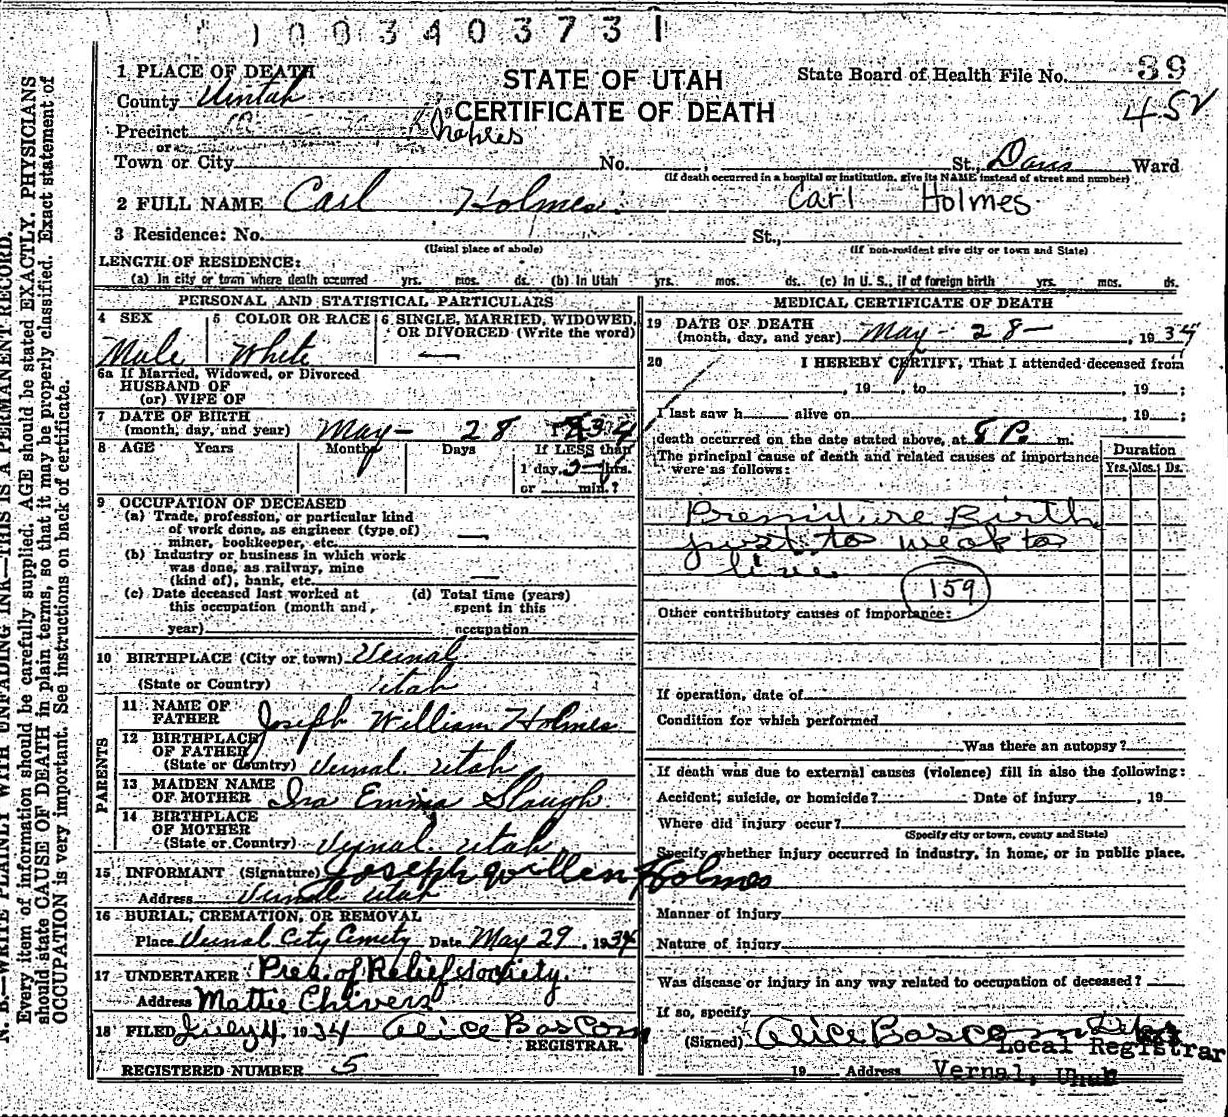 1003403731
1 PLACE OF DEATH
STATE OF UTAH
CERTIFICATE OF DEATH
State Board of Health File No. 39
452
County Uintah
Precinct Naples
or
Town or City No. , St., Davis Ward
(If death occurred in a hospital or institution, give its NAME instead of street and number)
2 FULL NAME Carl Holmes. Carl Holmes.
3 Residence: No. St.,
(Usual place of abode) (If non-resident give city or town and State)
LENGTH OF RESIDENCE:
(a) In city or town where death occurred yrs. mos. ds. (b) In Utah yrs. mos. ds. (c) In U. S., if of foreign birth yrs. mos. ds.
PERSONAL AND STATISTICAL PARTICULARS
4 SEX Male
5 COLOR OR RACE White
6 SINGLE, MARRIED, WIDOWED, OR DIVORCED (Write the word) —
6a If Married, Widowed, or Divorced
HUSBAND OF
(or) WIFE OF
7 DATE OF BIRTH
(month, day, and year) May - 28 1934
8 AGE Years Months Days If LESS than
1 day, hrs.
or min.?
9 OCCUPATION OF DECEASED
(a) Trade, profession, or particular kind
of work done, as engineer (type of)
miner, bookkeeper, etc. —
(b) Industry or business in which work
was done, as railway, mine
(kind of), bank, etc. —
(c) Date deceased last worked at
this occupation (month and
year)
(d) Total time (years)
spent in this
occupation
10 BIRTHPLACE (City or town) Vernal
(State or Country) Utah
PARENTS
11 NAME OF
FATHER Joseph William Holmes
12 BIRTHPLACE
OF FATHER
(State or Country) Vernal. Utah
13 MAIDEN NAME
OF MOTHER Ina Emma Slaugh.
14 BIRTHPLACE
OF MOTHER
(State or Country) Vernal. Utah.
15 INFORMANT (Signature) Joseph Willien Holmes
Address Vernal Utah
16 BURIAL, CREMATION, OR REMOVAL
Place Vernal City Cemity Date May 29, 1934
17 UNDERTAKER Pres. of Relief Society.
Address Mattie Chivers
18 FILED July 4, 1934 Alice Bascom
REGISTRAR.
REGISTERED NUMBER 5
MEDICAL CERTIFICATE OF DEATH
19 DATE OF DEATH
(month, day, and year) May - 28 - , 1934
20 I HEREBY CERTIFY, That I attended deceased from
, 19 , to , 19 ;
I last saw h alive on , 19 ;
death occurred on the date stated above, at 8 P. m.
The principal cause of death and related causes of importance
were as follows:
Duration
Yrs. Mos. Ds.
Premiture Birth
just to weak to
live
159
Other contributory causes of importance:
If operation, date of
Condition for which performed
Was there an autopsy?
If death was due to external causes (violence) fill in also the following:
Accident, suicide, or homicide? Date of injury , 19
Where did injury occur?
(Specify city or town, county and State)
Specify whether injury occurred in industry, in home, or in public place.
Manner of injury
Nature of injury
Was disease or injury in any way related to occupation of deceased?
If so, specify
(Signed) Alice Bascom
Local Registrar
19 Address Vernal, Utah
N. B.—WRITE PLAINLY WITH UNFADING INK—THIS IS A PERMANENT RECORD.
Every item of information should be carefully supplied. AGE should be stated EXACTLY. PHYSICIANS
should state CAUSE OF DEATH in plain terms, so that it may be properly classified. Exact statement of
OCCUPATION is very important. See instructions on back of certificate.